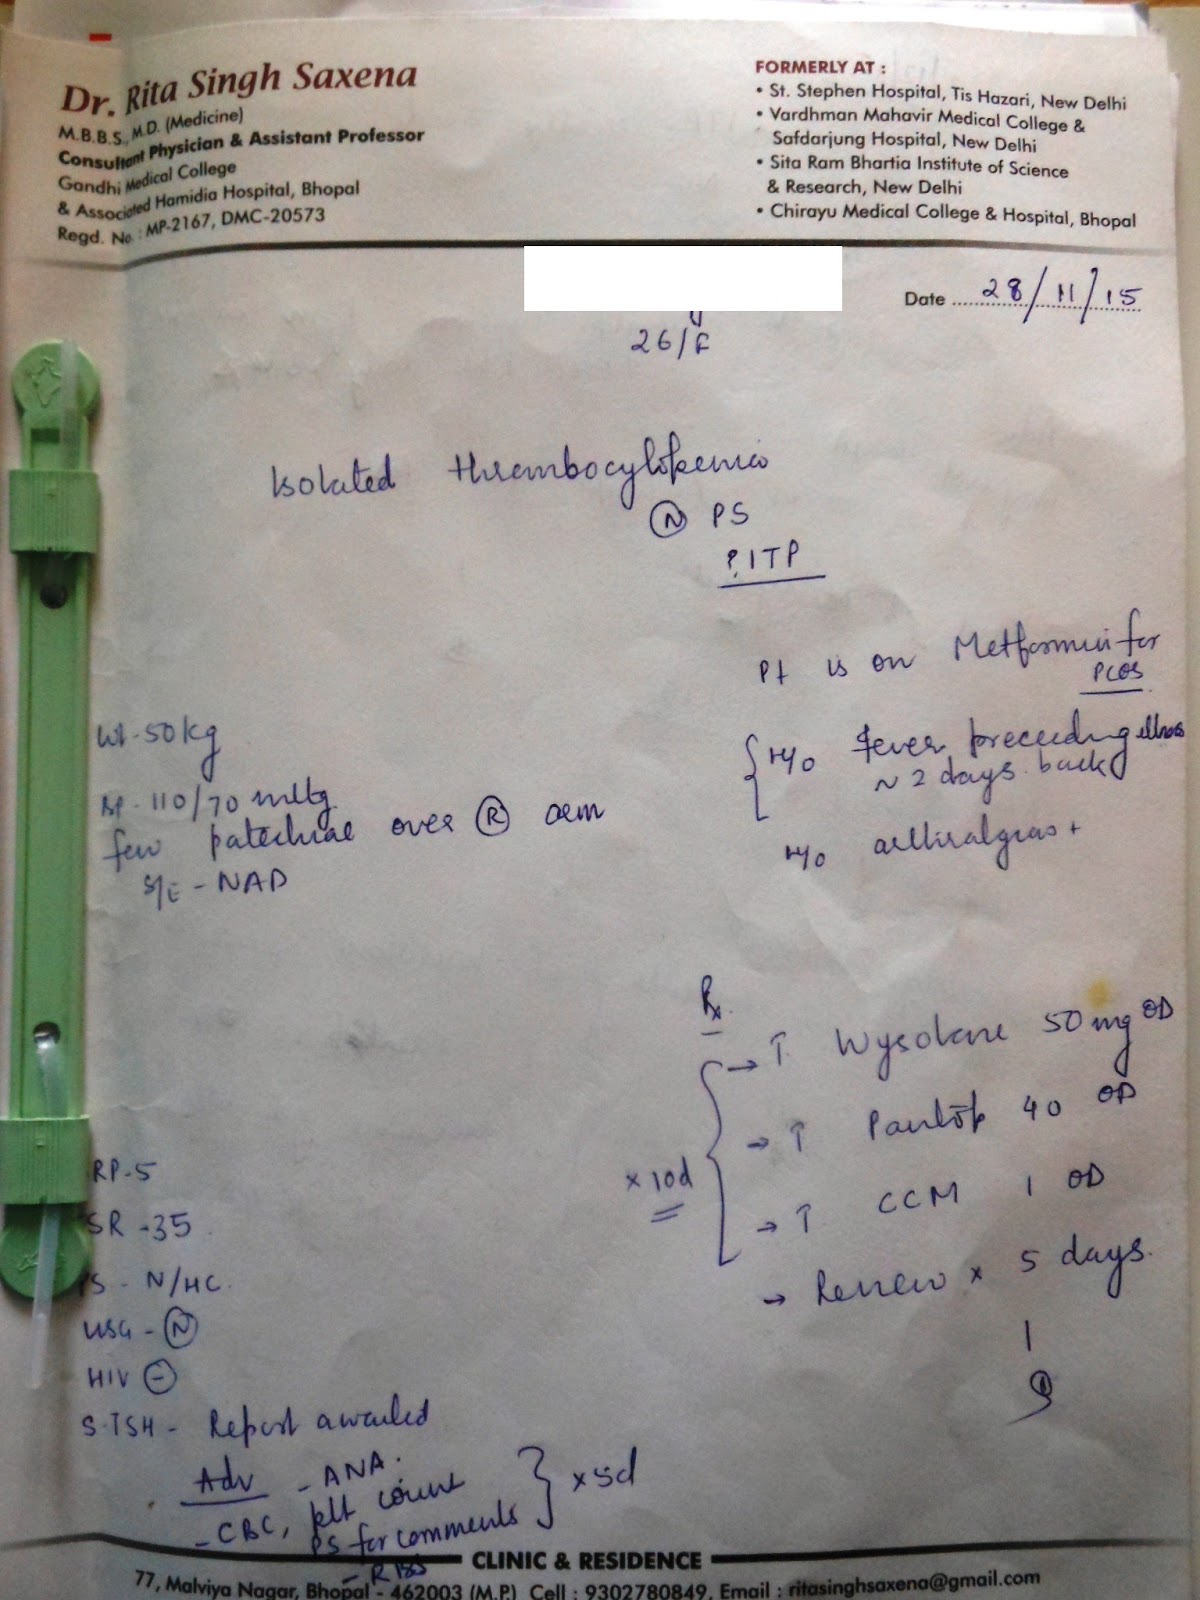 Dr. Rita Singh Saxena
M.B.B.S., M.D. (Medicine)
Consultant Physician & Assistant Professor
Gandhi Medical College
& Associated Hamidia Hospital, Bhopal
Regd. No. : MP-2167, DMC-20573
FORMERLY AT :
• St. Stephen Hospital, Tis Hazari, New Delhi
• Vardhman Mahavir Medical College &
Safdarjung Hospital, New Delhi
• Sita Ram Bhartia Institute of Science
& Research, New Delhi
• Chirayu Medical College & Hospital, Bhopal
Date 28/11/15
26/F
Isolated thrombocytopenia
Ⓝ PS
? ITP
Pt is on Metformin for
PCOS
H/o fever preceeding illness
~ 2 days back
H/o arthralgias +
Wt - 50kg
BP - 110/70 mmHg
few patechiae over Ⓡ arm
S/E - NAD
Rx
→ T. Wysolone 50 mg OD
→ T Pantop 40 OD
→ T CCM 1 OD
x 10d
→ Review x 5 days.
RP-5
SR -35
PS - N/HC.
USG - Ⓝ
HIV ⊖
S.TSH - Report awaited
Adv - ANA.
- CBC, plt count
PS for comments
- RBS
x 5d
CLINIC & RESIDENCE
77, Malviya Nagar, Bhopal - 462003 (M.P.) Cell : 9302780849, Email : ritasinghsaxena@gmail.com